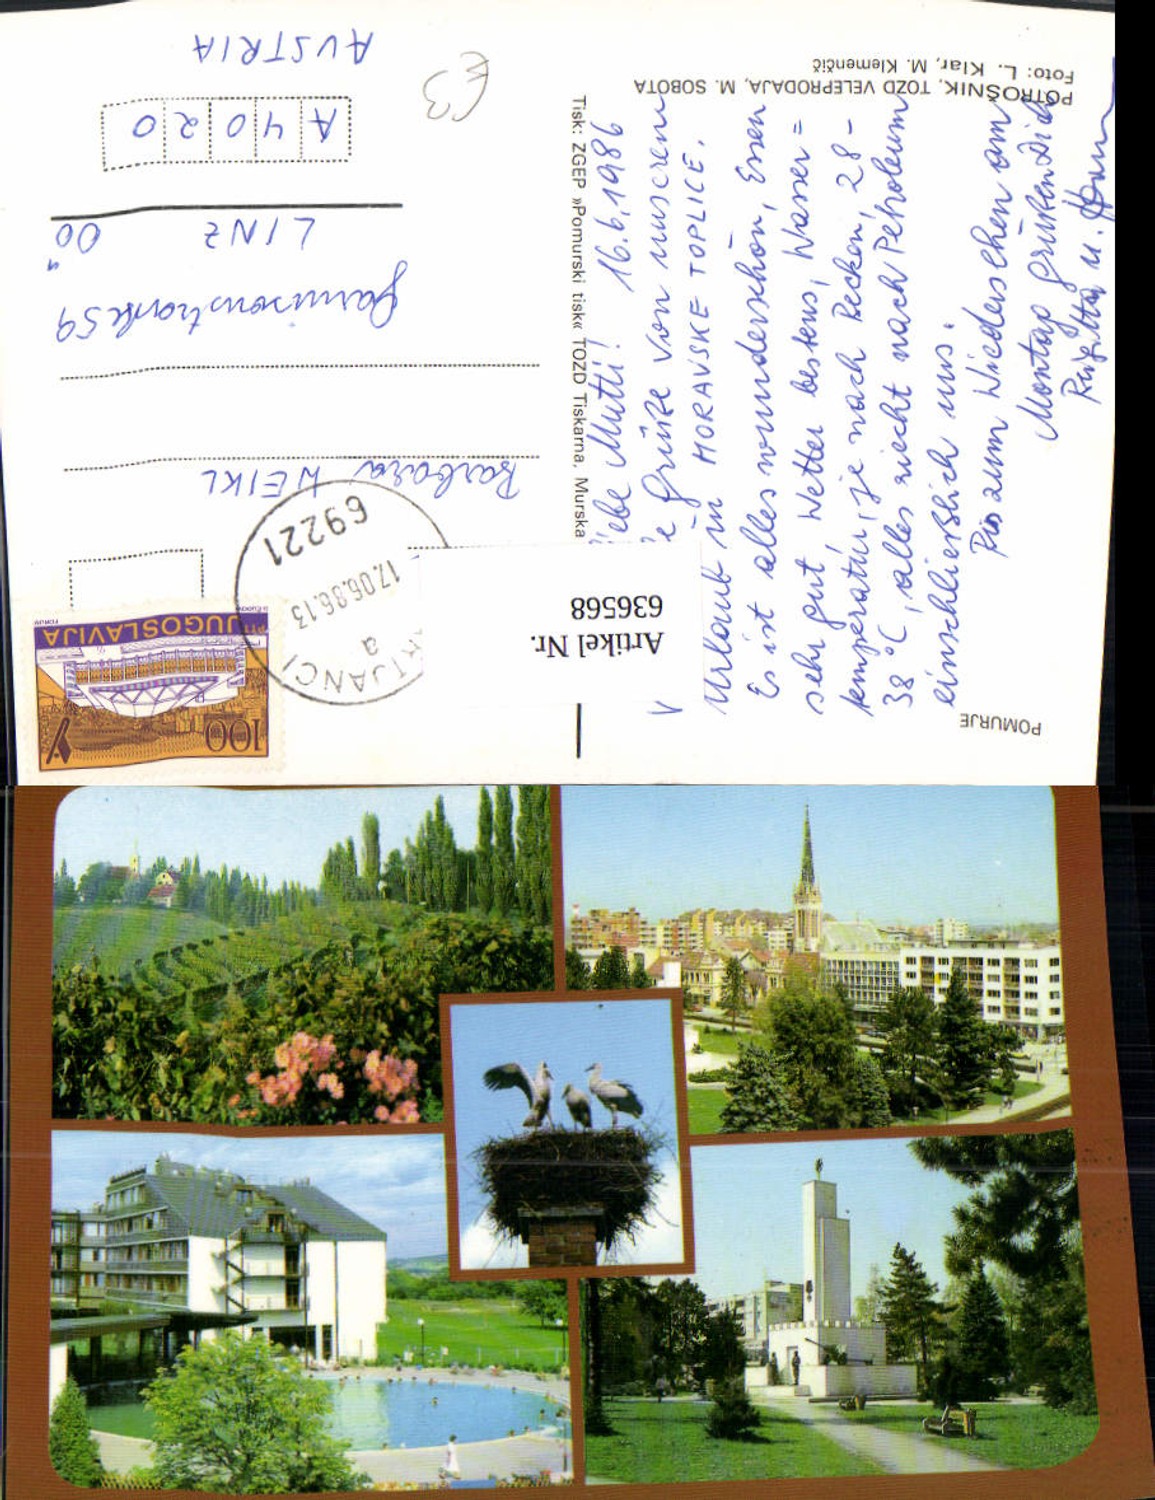 POMURJE
Liebe Mutti! 16.6.1986
Grüße von unserem
Urlaub in MORAVSKE TOPLICE.
Es ist alles wunderschön, Essen
sehr gut, Wetter bestens, Wasser =
temperatur, je nach Becken, 28 -
38°C, alles riecht nach Petroleum
einschließlich uns.
Bis zum Wiedersehen am
Montag grüßen Dich
Brigitta u.
POTROŠNIK, TOZD VELEPRODAJA, M. SOBOTA
Foto: L. Klar, M. Klemenčič
Tisk: ZGEP »Pomurski tisk« TOZD Tiskarna, Murska
Artikel Nr.
636568
100
JUGOSLAVIJA
RTJANCI
a
17.06.86.13
69221
Barbara WEIKL
Garnisonstraße 59
LINZ OÖ
A 4020
AUSTRIA
€3